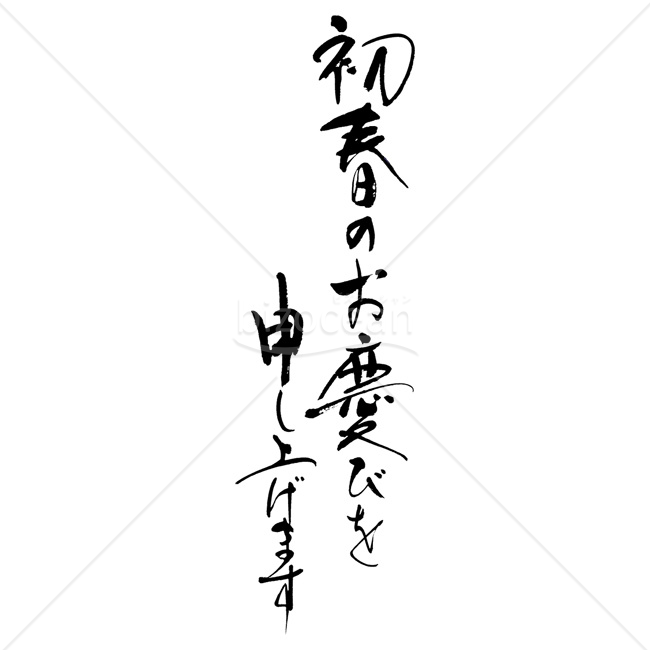 初春のお慶びを
申し上げます
bizocean